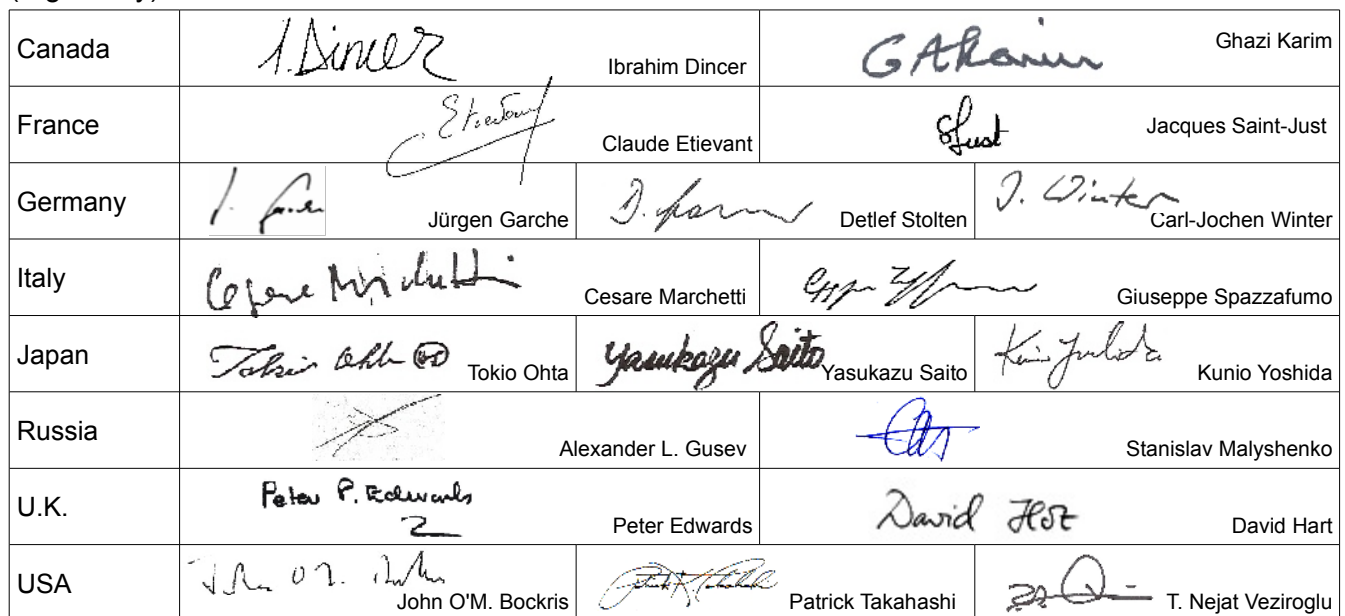 Canada
I. Dincer Ibrahim Dincer
G A Karim Ghazi Karim
France
Etievant Claude Etievant
Just Jacques Saint-Just
Germany
Jürgen Garche
D. Detlef Stolten
J. Winter Carl-Jochen Winter
Italy
Cesare Marchetti Cesare Marchetti
Giuseppe Spazzafumo
Japan
Tokio Ohta Tokio Ohta
Yasukazu Saito Yasukazu Saito
Kunio Yoshida Kunio Yoshida
Russia
Alexander L. Gusev
Stanislav Malyshenko
U.K.
Peter P. Edwards Peter Edwards
David Hart David Hart
USA
John O'M. Bockris
Patrick Takahashi
T. Nejat Veziroglu